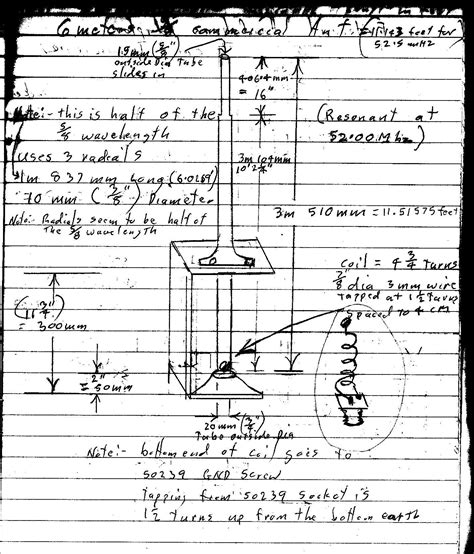 6 meters 5/8 commercial Ant. (= 11.43 feet for 52.5 mHz
15mm (5/8") outside Dia tube slides in
406.4mm = 16"
Note:- this is half of the 5/8 wavelength
(Resonant at 52.00 Mhz)
uses 3 radials
1m 837 mm Long (6.0269')
10 mm (3/8") Diameter
3m 104mm 10' 2 1/4"
Note:- Radials seem to be half of the 5/8 wavelength
3m 510mm = 11.51575 feet
coil = 4 3/4 turns
dia 3mm wire
tapped at 1 1/2 turns
spaced to 4 CM
(11 3/4") = 300mm
2" = 50mm
20mm (3/4")
Tube outside Dia
Note:- bottom end of coil goes to
SO239 GND Screw
Tapping from SO239 socket is
1 1/2 turns up from the bottom earth